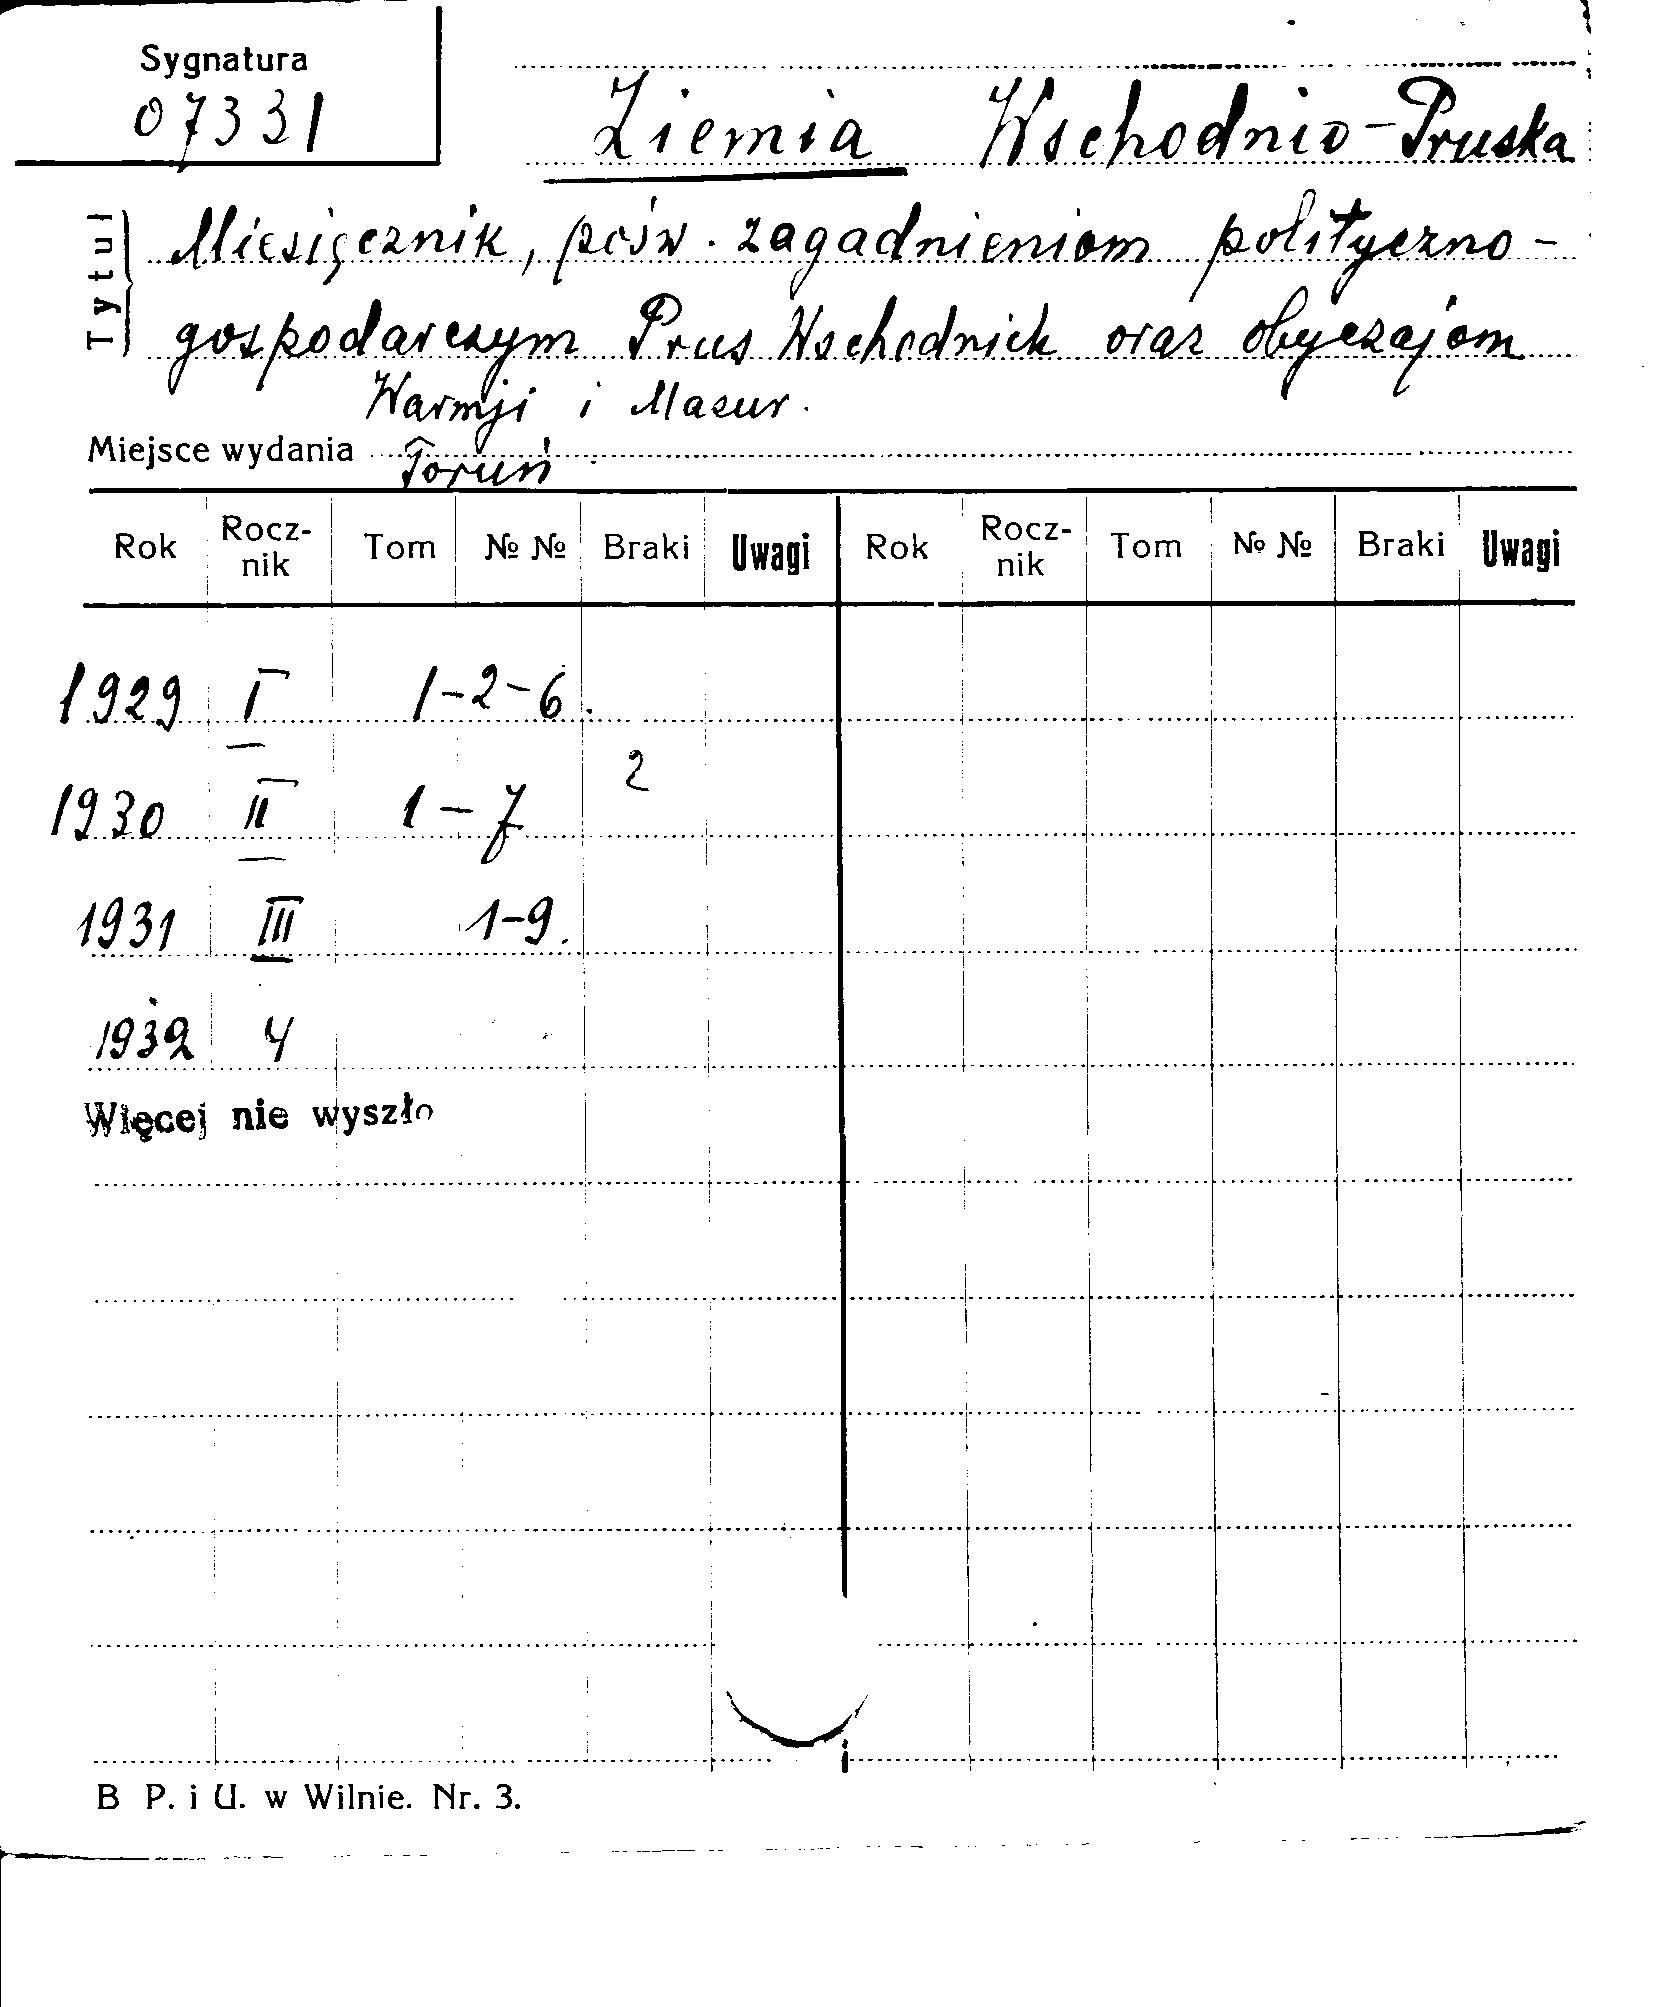 Sygnatura
07331
Ziemia Wschodnio-Pruska
Tytuł
Miesięcznik, pośw. zagadnieniom polityczno-
gospodarczym Prus Wschodnich oraz obyczajom
Warmji i Mazur.
Miejsce wydania Toruń
Rok Rocz-nik Tom № № Braki Uwagi Rok Rocz-nik Tom № № Braki Uwagi
1929 I 1-2-6.
2
1930 II 1-7
1931 III 1-9.
1932 4
Więcej nie wyszło
B P. i U. w Wilnie. Nr. 3.